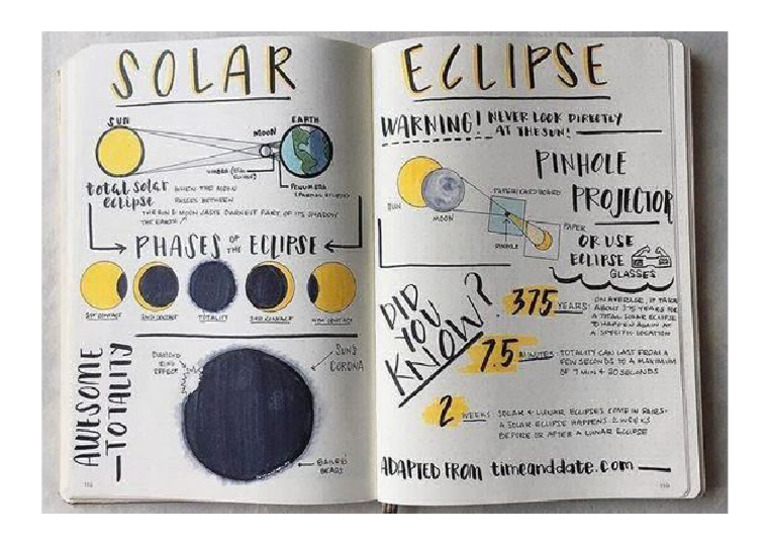 SOLAR
SUN
MOON
EARTH
UMBRA
PENUMBRA
total solar
eclipse
WHEN THE MOON
PASSES BETWEEN
THE SUN & MOON CASTS DARKEST PART OF ITS SHADOW
THE EARTH
PHASES OF THE ECLIPSE
1ST CONTACT
2ND CONTACT
TOTALITY
3RD CONTACT
4TH CONTACT
AWESOME
TOTALITY
DIAMOND
RING
EFFECT
SUN'S
CORONA
BAILEY'S
BEADS
ECLIPSE
WARNING! NEVER LOOK DIRECTLY
AT THE SUN!
PINHOLE
PROJECTOR
SUN
MOON
PAPER/CARDBOARD
PINHOLE
PAPER
OR USE
ECLIPSE
GLASSES
DID
YOU
KNOW?
375 YEARS: ON AVERAGE, IT TAKES
ABOUT 375 YEARS FOR
A TOTAL SOLAR ECLIPSE
TO HAPPEN AGAIN AT
A SPECIFIC LOCATION
7.5 MINUTES: TOTALITY CAN LAST FROM A
FEW SECONDS TO A MAXIMUM
OF 7 MIN & 30 SECONDS
2 WEEKS: SOLAR & LUNAR ECLIPSES COME IN PAIRS-
A SOLAR ECLIPSE HAPPENS 2 WEEKS
BEFORE OR AFTER A LUNAR ECLIPSE
ADAPTED FROM timeanddate.com